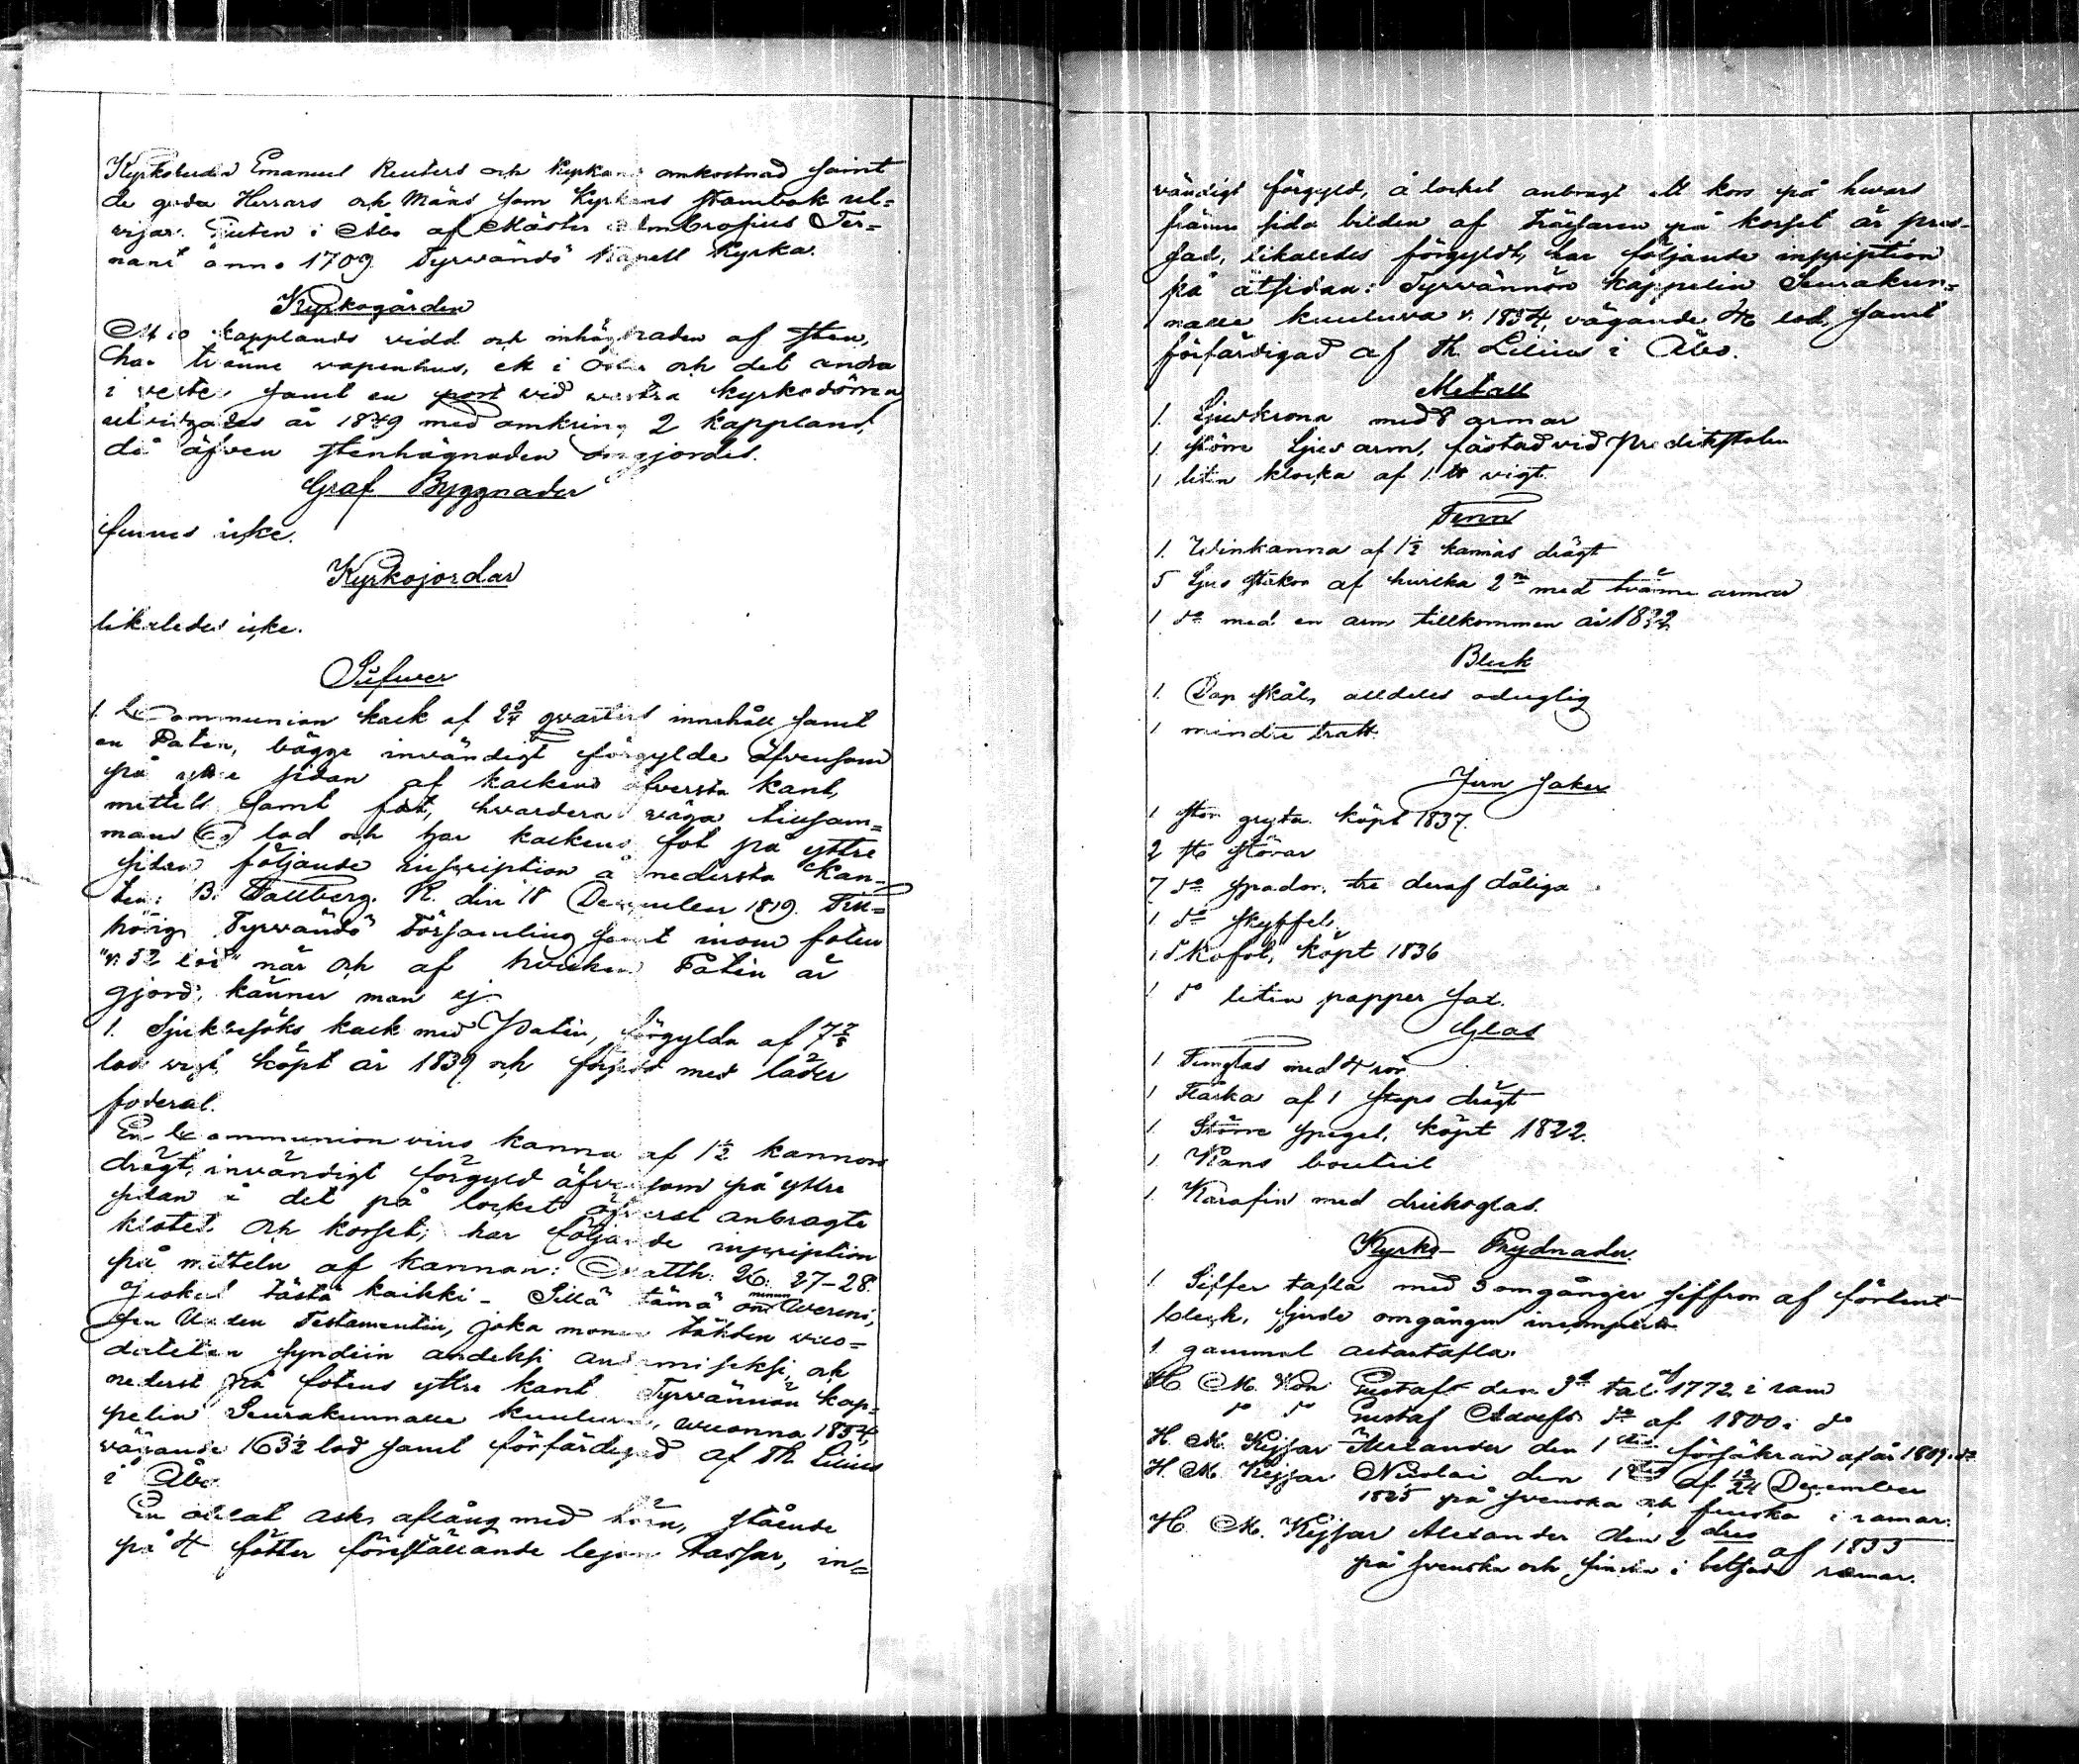 Kyrkoherden Emanuel Reuters och Kyrkans omkostnad samt
de goda Herrars och Mäns som Kyrkans stambok ut-
visar. Guten i Åbo af Mäster Ambrosius Ter-
nant anno 1709. Tyrvändö Kapell Kyrka.
Kyrkogården
kapplands vidd och inhägnaden af sten,
har tvänne vapenhus, ett i öster och det andra
i vester samt en port vid westra kyrkodörren
utvidgades år 1849 med omkring 2 kappland,
då äfven stenhägnaden omgjordes.
Graf Byggnader
finnes icke.
Kyrkojordar
likaledes icke.
Silfwer
1. Communion kalk af 2¾ qvarters innehåll samt
en Paten, bägge invändigt förgylde äfvensom
på yttre sidan af kalkens öfversta kant,
mittelt samt fot, hvardera väga tillsam-
mans lod och har kalkens fot på yttre
sidan följande inscription å nedersta kan-
ten: B. Tallberg. K. den 18 December 1819. Till-
hörig Tyrvändö Församling samt inom foten
"v. 52 lod" när och af hvilken Paten är
gjord, känner man ej.
1. Sjukbesöks kalk med Patin, förgylda af 7⅞
lod vigt köpt år 1839 och försedd med läder
foderal.
En Communion vins kanna af 1½ kannors
drägt, invändigt förgyld äfvensom på yttre
sidan i det på locket öfverst anbragte
klotet och korset, har följande inscription
på mitteln af kannan: Matth: 26: 27-28.
Juokat tästä kaikki - Sillä tämä on minun Wereni,
sen Uuden Testamentin, joka monen tähden vuo-
datetan syndein andeksi andamiseksi, och
nederst på fotens yttre kant Tyrvännön kap-
pelin Seurakunnalle kuuluva, wuonna 1834,
vägande 163½ lod samt förfärdigad af Th. Lilius
i Åbo.
En oblat ask, aflång med hörn, stående
på 4 fötter föreställande lejon tassar, in-
vändigt förgyld, å locket anbragt ett kors på hvars
främre sida bilden af Frälsaren på korset är pres-
sad, likaledes förgyldt, har följande inscription
på åtsidan: Tyrvännön kappelin Seurakun-
nalle kuuluva v. 1834, vägande 46 lod, samt
förfärdigad af Th. Lilius i Åbo.
Metall
1. Ljuskrona med 8 armar
1. större Ljus arm, fästad vid Predikstolen
1 liten klocka af 1. ℔ vigt.
Tenn
1. Winkanna af 1½ kannas drägt
5 Ljus stakar af hvilka 2ne med tvänne armar
1 do med en arm tillkommen år 1832
Bleck
1. Dop skål, alldeles oduglig
1 mindre tratt.
Jern saker
1 stor gryta. köpt 1837.
2 st störar
7 do spador, tre deraf dåliga
1 do skyffel.
1 do kofot, köpt 1836
1 do liten papper sax.
Glas
1 Timglas med 4 rör
1 Flaska af 1 stops drägt
1. Större spegel, köpt 1822.
1 Kans bouteil
1. Karafin med dricksglas.
Kyrko- Prydnader.
1 Siffer tafla med 3 omgånger siffror af förtent
bleck, fjerde omgången incomplett
1 gammal altartafla.
H. M. Kon. Gustafs den 3d tal af 1772 i ram
do do Gustaf Adolfs do af 1800 i do
H. M. Kejsar Alexander den 1stes försäkran af år 1809. i do
H. M. Kejsar Nicolai den 1stes af 12/24 December
1825 på svenska och finska i ramar.
H. M. Kejsar Alexander den 2dres af 1855
på svenska och finska i betsade ramar.